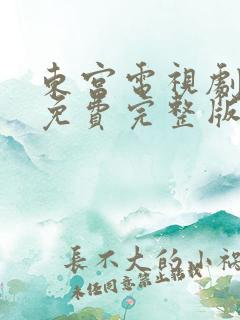 東宮電視劇
免費完整版
長不大的小禍
未經同意禁止轉載